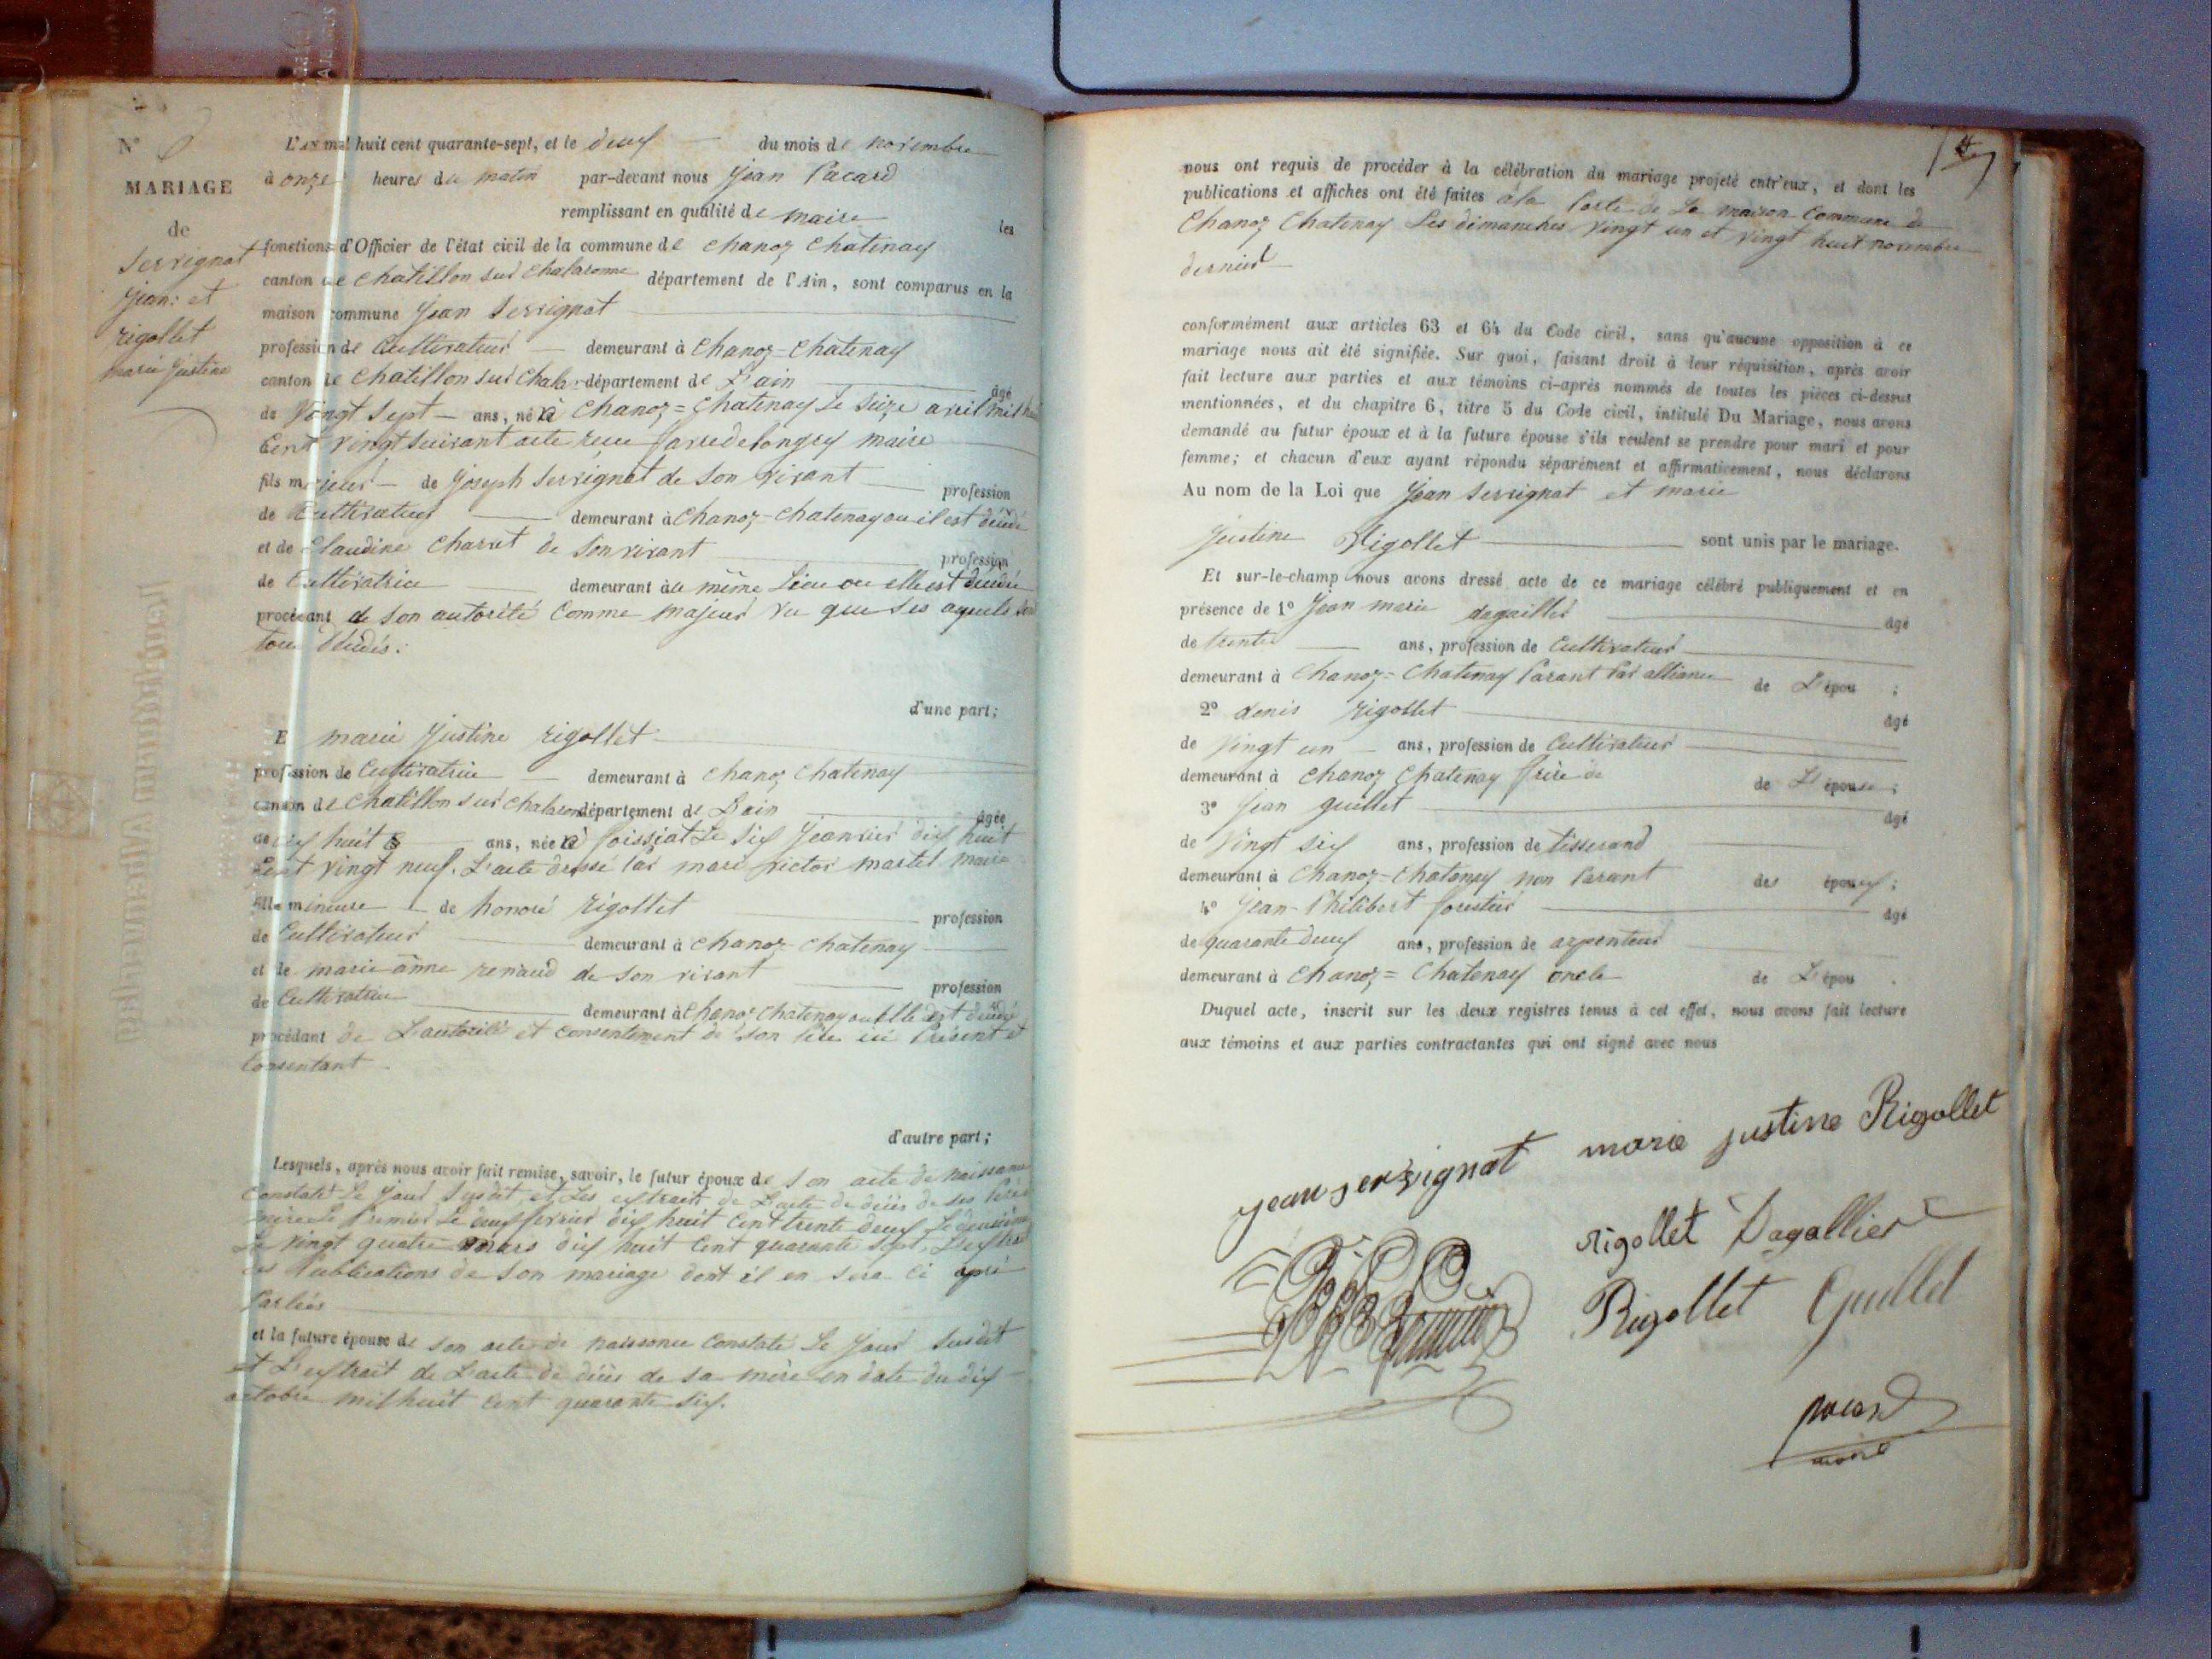 N° 
MARIAGE
de
Servignat
Jean: et
rigollet
marie justine
L'an mil huit cent quarante-sept, et le deux du mois de novembre
à onze heures du matin par-devant nous Jean Pacard
remplissant en qualité de maire les
fonctions d'Officier de l'état civil de la commune de chanoz chatenay
canton de chatillon sur chalaronne département de l'Ain, sont comparus en la
maison commune Jean Servignat
profession de Cultivateur demeurant à Chanoz=Chatenay
canton de chatillon sur Chalar département de L'ain âgé
de Vingt Sept ans, né à Chanoz=Chatenay Le Seize avril mil huit
Cent vingt suivant acte reçu maire
fils majeur de Joseph Servignat de Son vivant profession
de Cultivateur demeurant à Chanoz-Chatenay ou il est décédé
et de Claudine Charvet de Son vivant profession
de Cultivatrice demeurant au même Lieu ou elle est décédée
procédant de Son autorité Comme majeur vu que Ses ayeuls sont
tous décédés:
d'une part;
Et marie Justine rigollet
profession de Cultivatrice demeurant à Chanoz Chatenay
canton de Chatillon sur chalaron département de L'ain âgée
de dix huit ans, née à foissiat Le Six Janvier dix huit
Cent vingt neuf. L'acte dressé Par marc victor martel maire
fille mineure de honoré rigollet profession
de Cultivateur demeurant à chanoz-Chatenay
et de marie anne renaud de Son vivant profession
de Cultivatrice demeurant à Chanoz Chatenay ou Elle est décédé
procédant de L'autorité et Consentement de Son Père ici Présent et
Consentant.
d'autre part;
Lesquels, après nous avoir fait remise, savoir, le futur époux de Son acte de naissance
Constaté Le Jour Susdit et Les extraits de L'acte de décès de ses Père
mère Le Premier Le deux février dix huit Cent trente deux Le deuxième
Le vingt quatre mars dix huit Cent quarante Sept,
des Publications de Son mariage dont il en Sera Ci après
Parlées
et la future épouse de Son acte de naissance Constaté Le Jour Susdit
et L'extrait de L'acte de décès de sa mère en date du dix
octobre mil huit cent quarante Six.
nous ont requis de procéder à la célébration du mariage projeté entr'eux, et dont les
publications et affiches ont été faites à la Porte de La maison Commune de
Chanoz Chatenay Les dimanches vingt un et vingt huit novembre
dernier
conformément aux articles 63 et 64 du Code civil, sans qu'aucune opposition à ce
mariage nous ait été signifiée. Sur quoi, faisant droit à leur réquisition, après avoir
fait lecture aux parties et aux témoins ci-après nommés de toutes les pièces ci-dessus
mentionnées, et du chapitre 6, titre 5 du Code civil, intitulé Du Mariage, nous avons
demandé au futur époux et à la future épouse s'ils veulent se prendre pour mari et pour
femme; et chacun d'eux ayant répondu séparément et affirmativement, nous déclarons
Au nom de la Loi que Jean Servignat et marie
Justine Rigollet sont unis par le mariage.
Et sur-le-champ nous avons dressé acte de ce mariage célébré publiquement et en
présence de 1° Jean marie dagaillier âgé
de trente ans, profession de Cultivateur
demeurant à Chanoz=Chatenay Parant Par alliance de L'épou ;
2° denis rigollet âgé
de Vingt un ans, profession de Cultivateur
demeurant à chanoz Chatenay frère de de L'épouse;
3° Jean guillet âgé
de Vingt Six ans, profession de tisserand
demeurant à Chanoz=Chatenay non Parant des époux;
4° Jean-Philibert forestier âgé
de quarante deux ans, profession de arpenteur
demeurant à Chanoz=Chatenay oncle de L'épou .
Duquel acte, inscrit sur les deux registres tenus à cet effet, nous avons fait lecture
aux témoins et aux parties contractantes qui ont signé avec nous
jean servignat marie justine Rigollet
rigollet Dagallier
Rigollet Guillet
pacard
maire